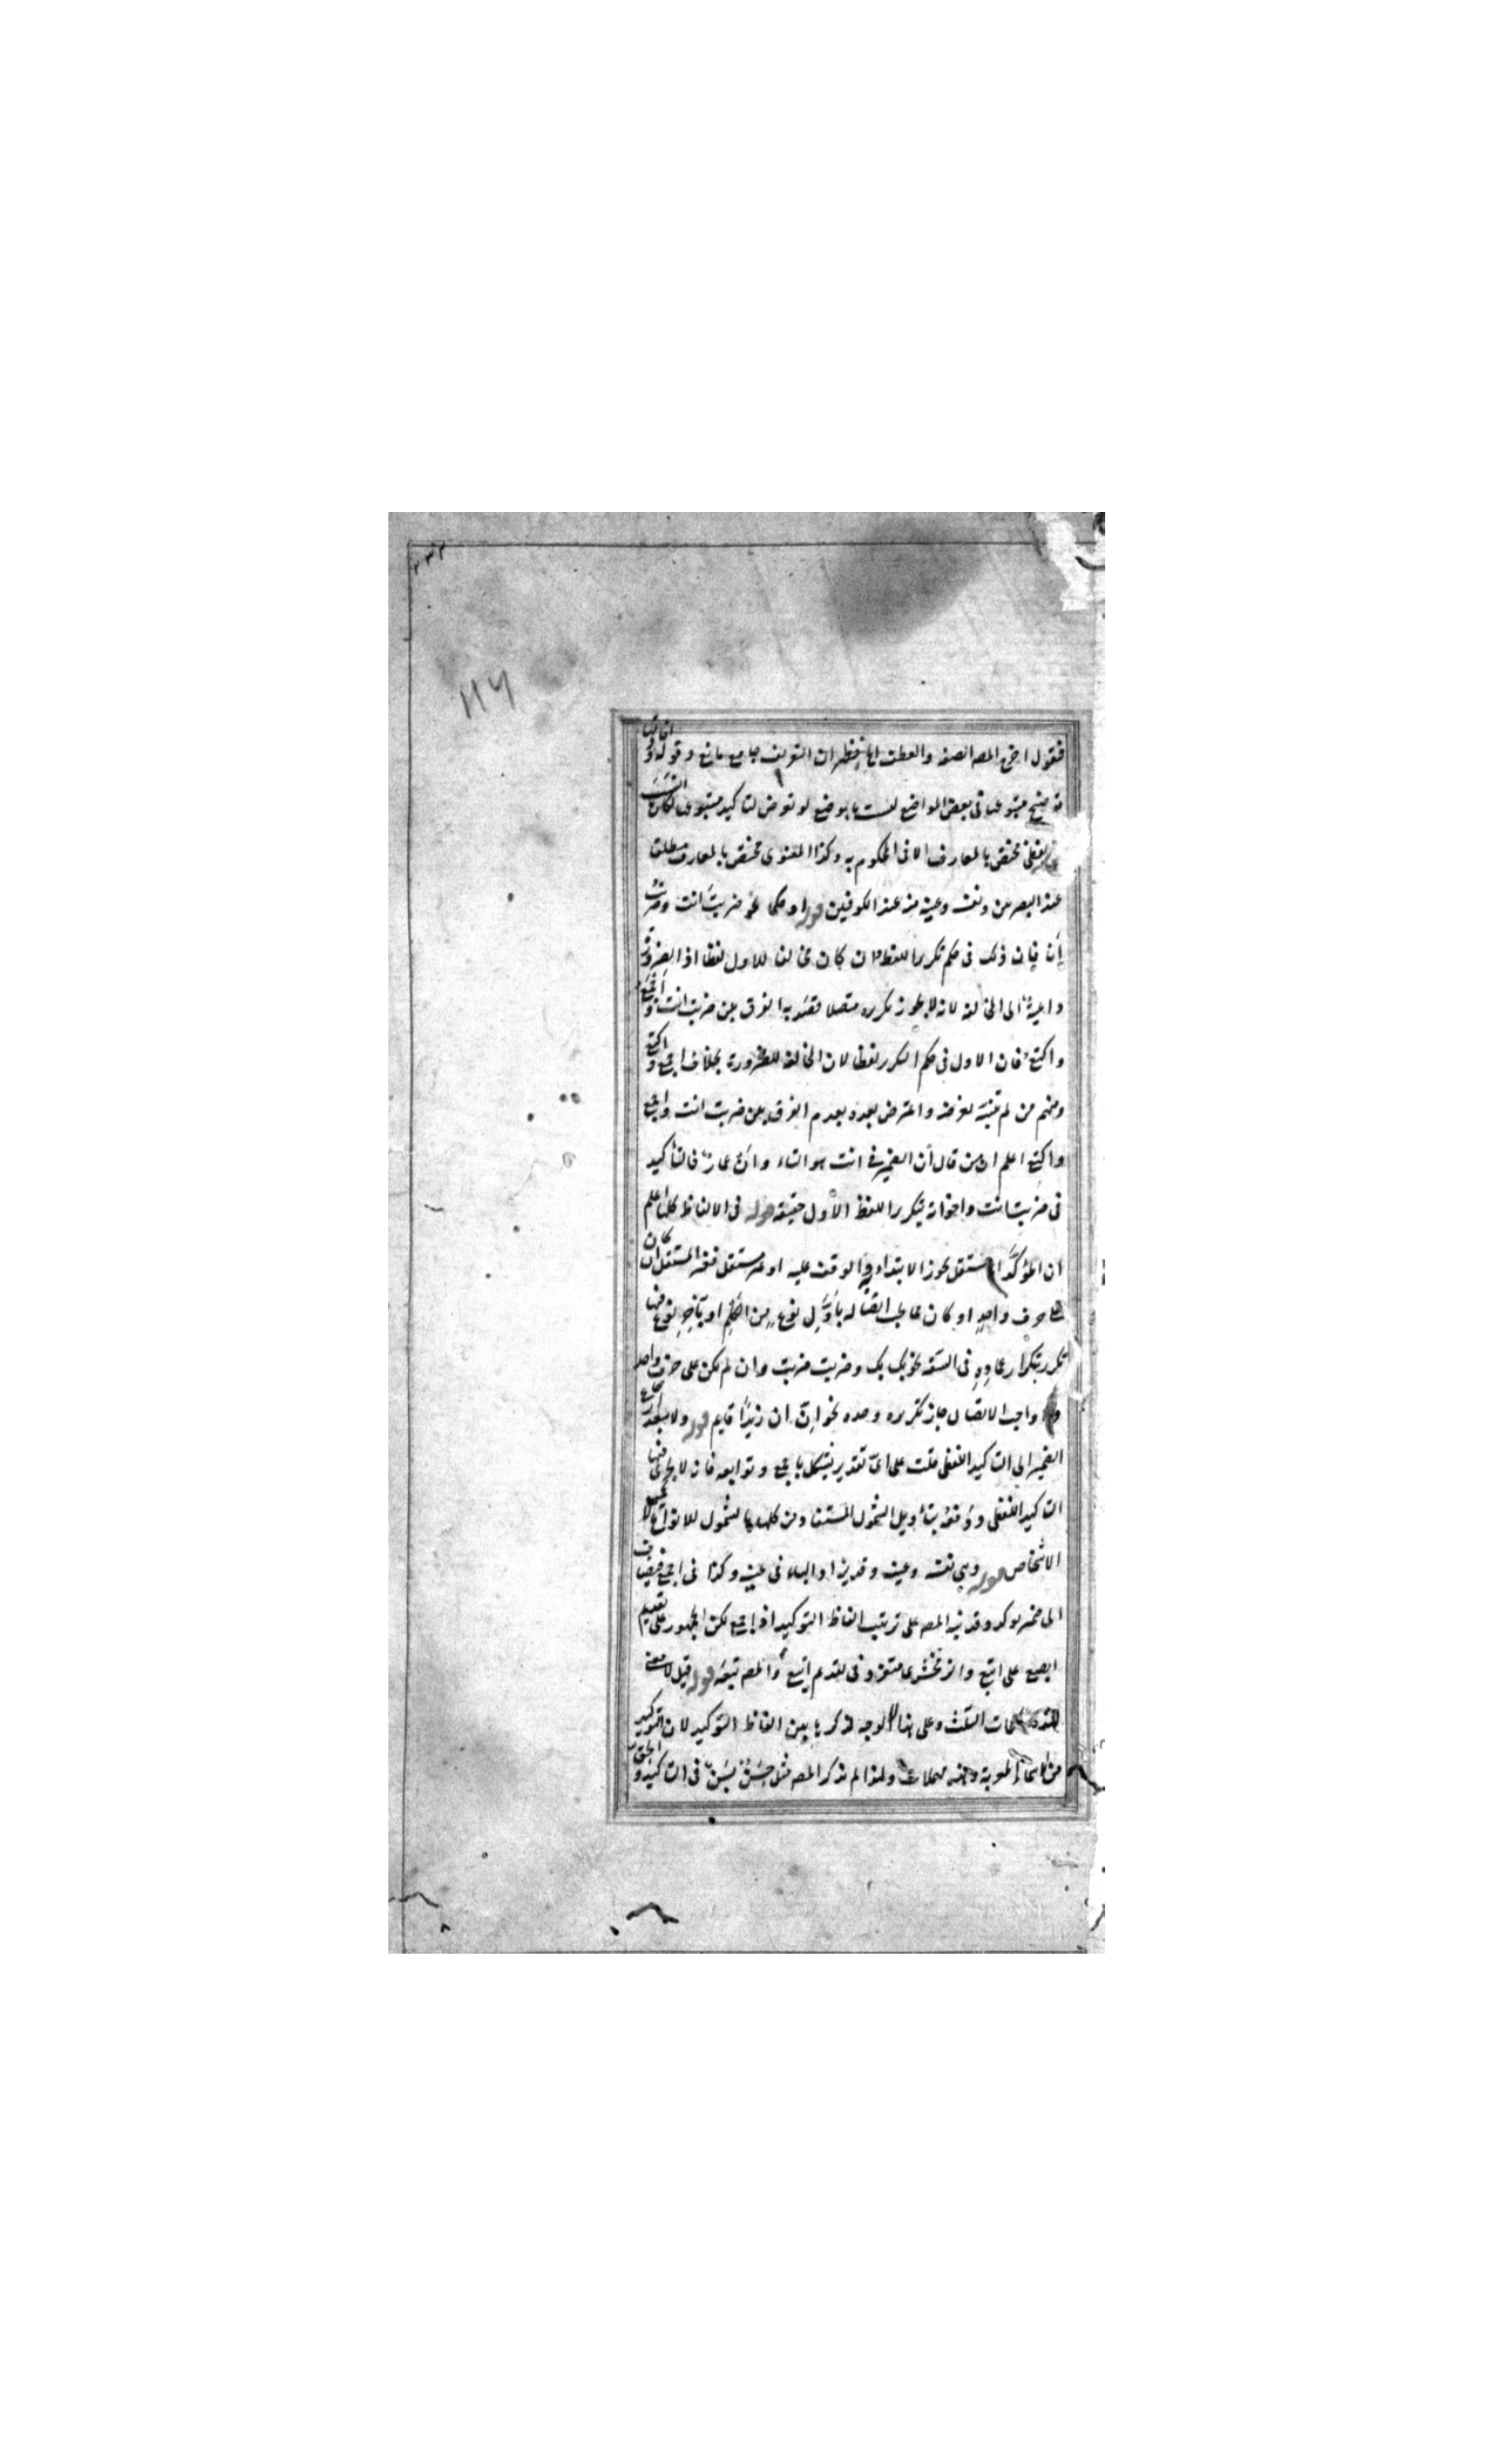 ٢٣٢
١١٦
فنقول اخرج المصه الصفة والعطف فظهر ان التعريف جامع مانع وقوله
توضيح متبوعه فى بعض المواضع ليست بالوضع لو تعرض لتأكيد متبوعه لكان
اللفظى مختص بالمعارف الا فى المحكوم به وكذا المعنوى مختص بالمعارف مطلقا
عند البصريين ونفسه وعينه منه عند الكوفيين قوله او حكما نحو ضربت انت وضربت
أنا فان ذلك فى حكم تكرير اللفظ وان كان مخالفا للاول لفظا اذ الضرورة
داعية الى المخالفة لانه لا يجوز تكريره متصلا فقصد به الفرق بين ضربت انت و اجمع
واكتع فان الاول فى حكم المكرر لفظا لان المخالفة للضرورة بخلاف اجمع و اكتع
ومنهم من لم يتنبه لغرضه واعترض بعده بعدم الفرق بين ضربت انت واجمع
واكتع اعلم ان من قال أن الضمير فى انت هو التاء وانّ عماد فالتأكيد
فى ضربت انت واخواته بتكرير اللفظ الاول حقيقة قوله فى الالفاظ كلها اعلم
ان المؤكد اما مستقل يجوز الابتداء به والوقف عليه او غير مستقل فغير المستقل ان كان
على حرف واحد او كان مما يجب اتصاله بأوّل نوع من الكلم او بآخر نوع منها
تكرر بتكرار عماده فى السعة نحو بك بك وضربت ضربت وان لم يكن على حرف واحد
ولا واجب الاتصال جاز تكريره وحده نحو انّ ان زيدًا قايم قوله ولا يبعد ارجاع
الضمير الى التاكيد اللفظى قلت على اىّ تقدير يشكل باجمع وتوابعه فانه لا يجرى فيها
التاكيد اللفظى
الاشخاص قوله وهى نفسه وعينه وقد يزاد الباء فى عينه وكذا فى اجمع فيضاف
الى ضمير موكد وقد نبه المصه على ترتيب الفاظ التوكيد اذا جمع لكن الجمهور على تقديم
ابصع على ابتع والزمخشرى متفرد فى تقديم ابتع والمصه تبعه قوله قيل لا معنى
لهذه الكلمات الثلث وعلى هذا لا وجه لذكرها بين الفاظ التوكيد لان التوكيد
من الاسماء المعربة وهذه مهملات ولهذا لم يذكر المصه مثل حسن بسن فى التاكيد و الحق